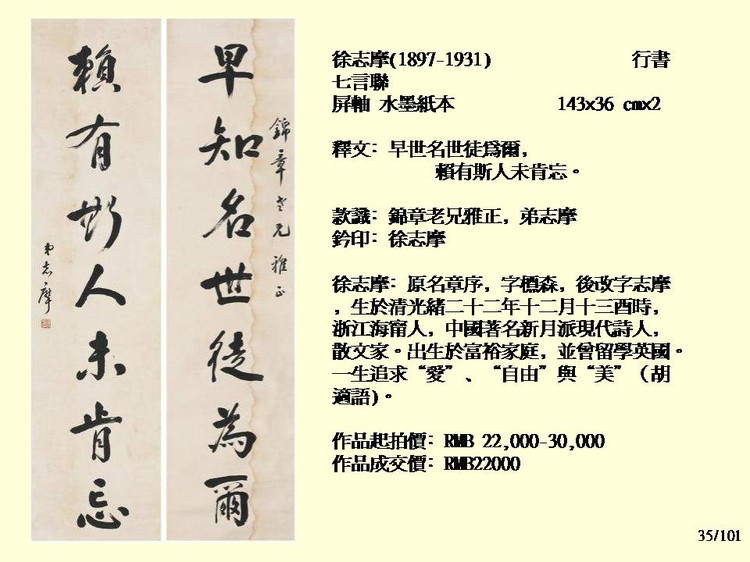 早知名世徒為爾
錦章老兄雅正
賴有斯人未肯忘
弟志摩
徐志摩(1897-1931) 行書
七言聯
屏軸 水墨紙本 143x36 cmx2
釋文: 早世名世徒爲爾,
賴有斯人未肯忘。
款識: 錦章老兄雅正, 弟志摩
鈐印: 徐志摩
徐志摩: 原名章序, 字槱森, 後改字志摩
, 生於清光緒二十二年十二月十三酉時,
浙江海甯人, 中國著名新月派現代詩人,
散文家。出生於富裕家庭, 並曾留學英國。
一生追求“愛”、“自由”與“美” (胡
適語)。
作品起拍價: RMB 22,000-30,000
作品成交價: RMB22000
35/101